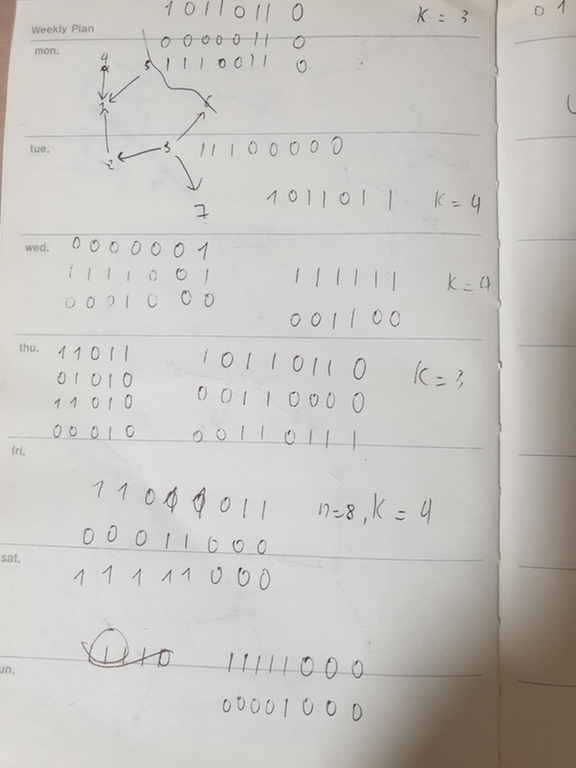 1 0 1 1 0 1 1 0 K = 3
0 1
Weekly Plan
0 0 0 0 0 1 1 0
mon.
1 1 1 1 0 0 1 1 0
4 5
1 6
tue.
3 1 1 1 0 0 0 0 0
2
7
1 0 1 1 0 1 1 K = 4
wed.
0 0 0 0 0 0 1
1 1 1 1 0 0 1 1 1 1 1 1 1 K = 4
0 0 0 1 0 0 0
0 0 1 1 0 0
thu.
1 1 0 1 1 1 0 1 1 0 1 1 0 K = 3
0 1 0 1 0 0 0 1 1 0 0 0 0
1 1 0 1 0
0 0 0 1 0 0 0 1 1 0 1 1 1
fri.
1 1 0 0 1 1 n=8, K = 4
0 0 0 1 1 0 0 0
sat.
1 1 1 1 1 0 0 0
1 1 1 0 1 1 1 1 1 0 0 0
un.
0 0 0 0 1 0 0 0